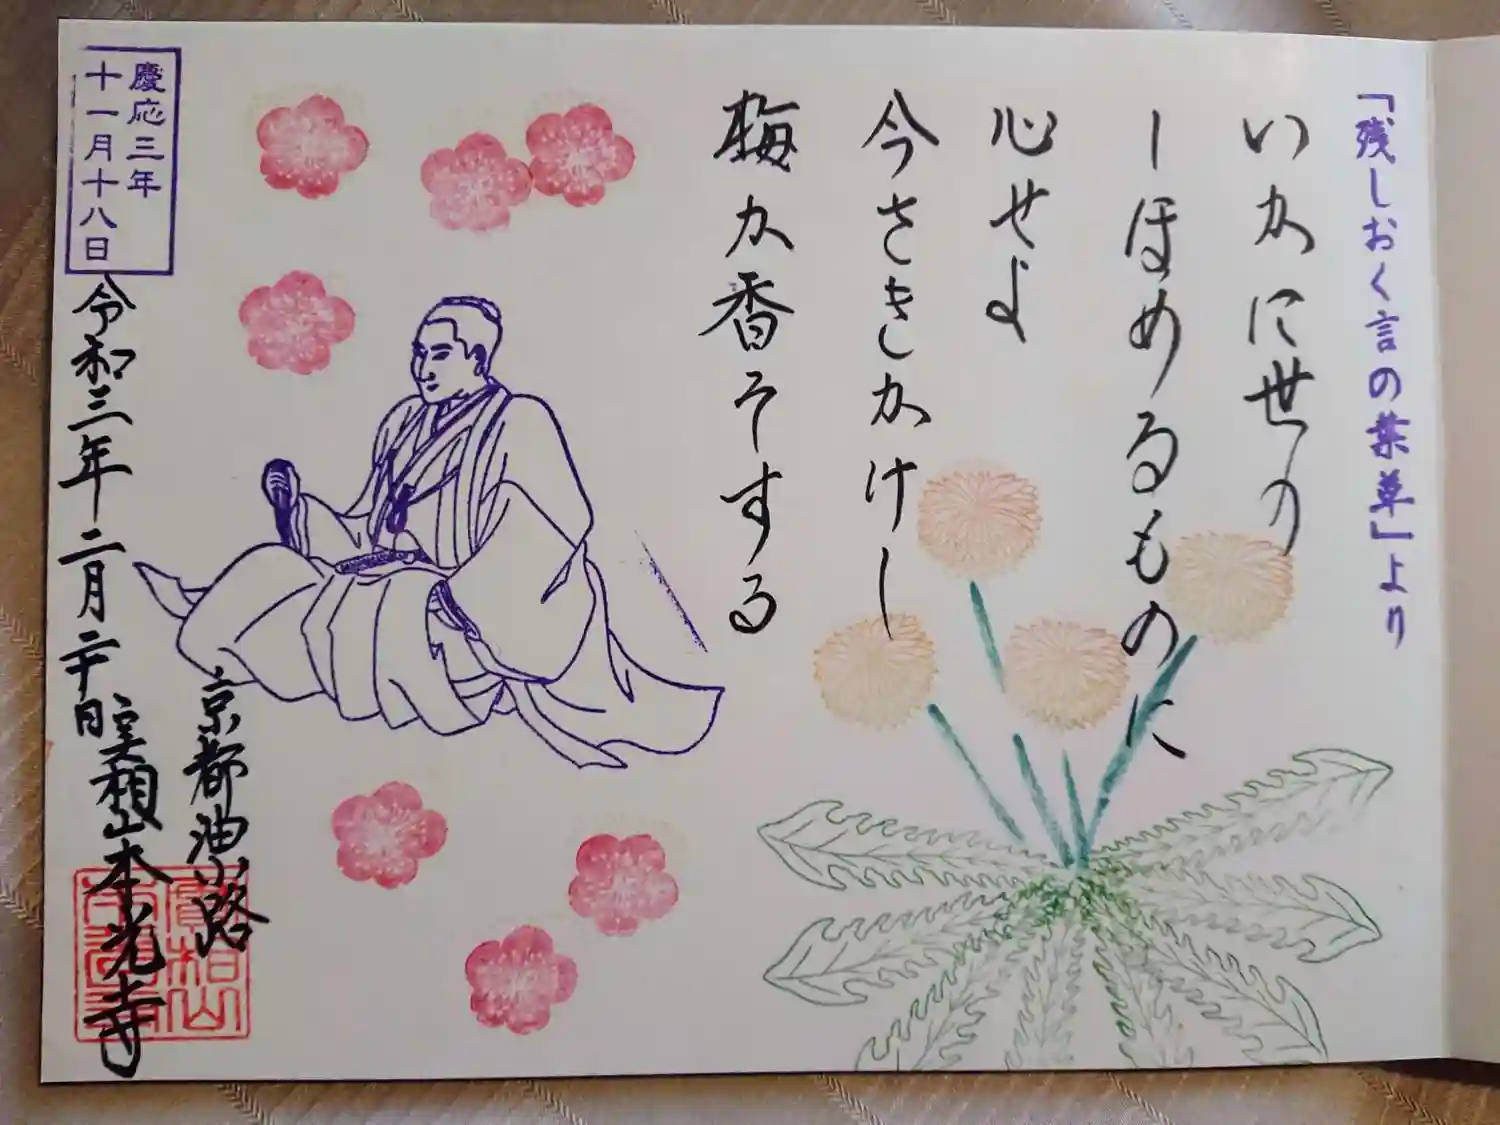 「残しおく言の葉草」より
いかに世の
しほめるものに
心せよ
今さきかけし
梅か香そする
慶応三年
十一月十八日
京都油小路
令和三年二月二十日 實相山本光寺